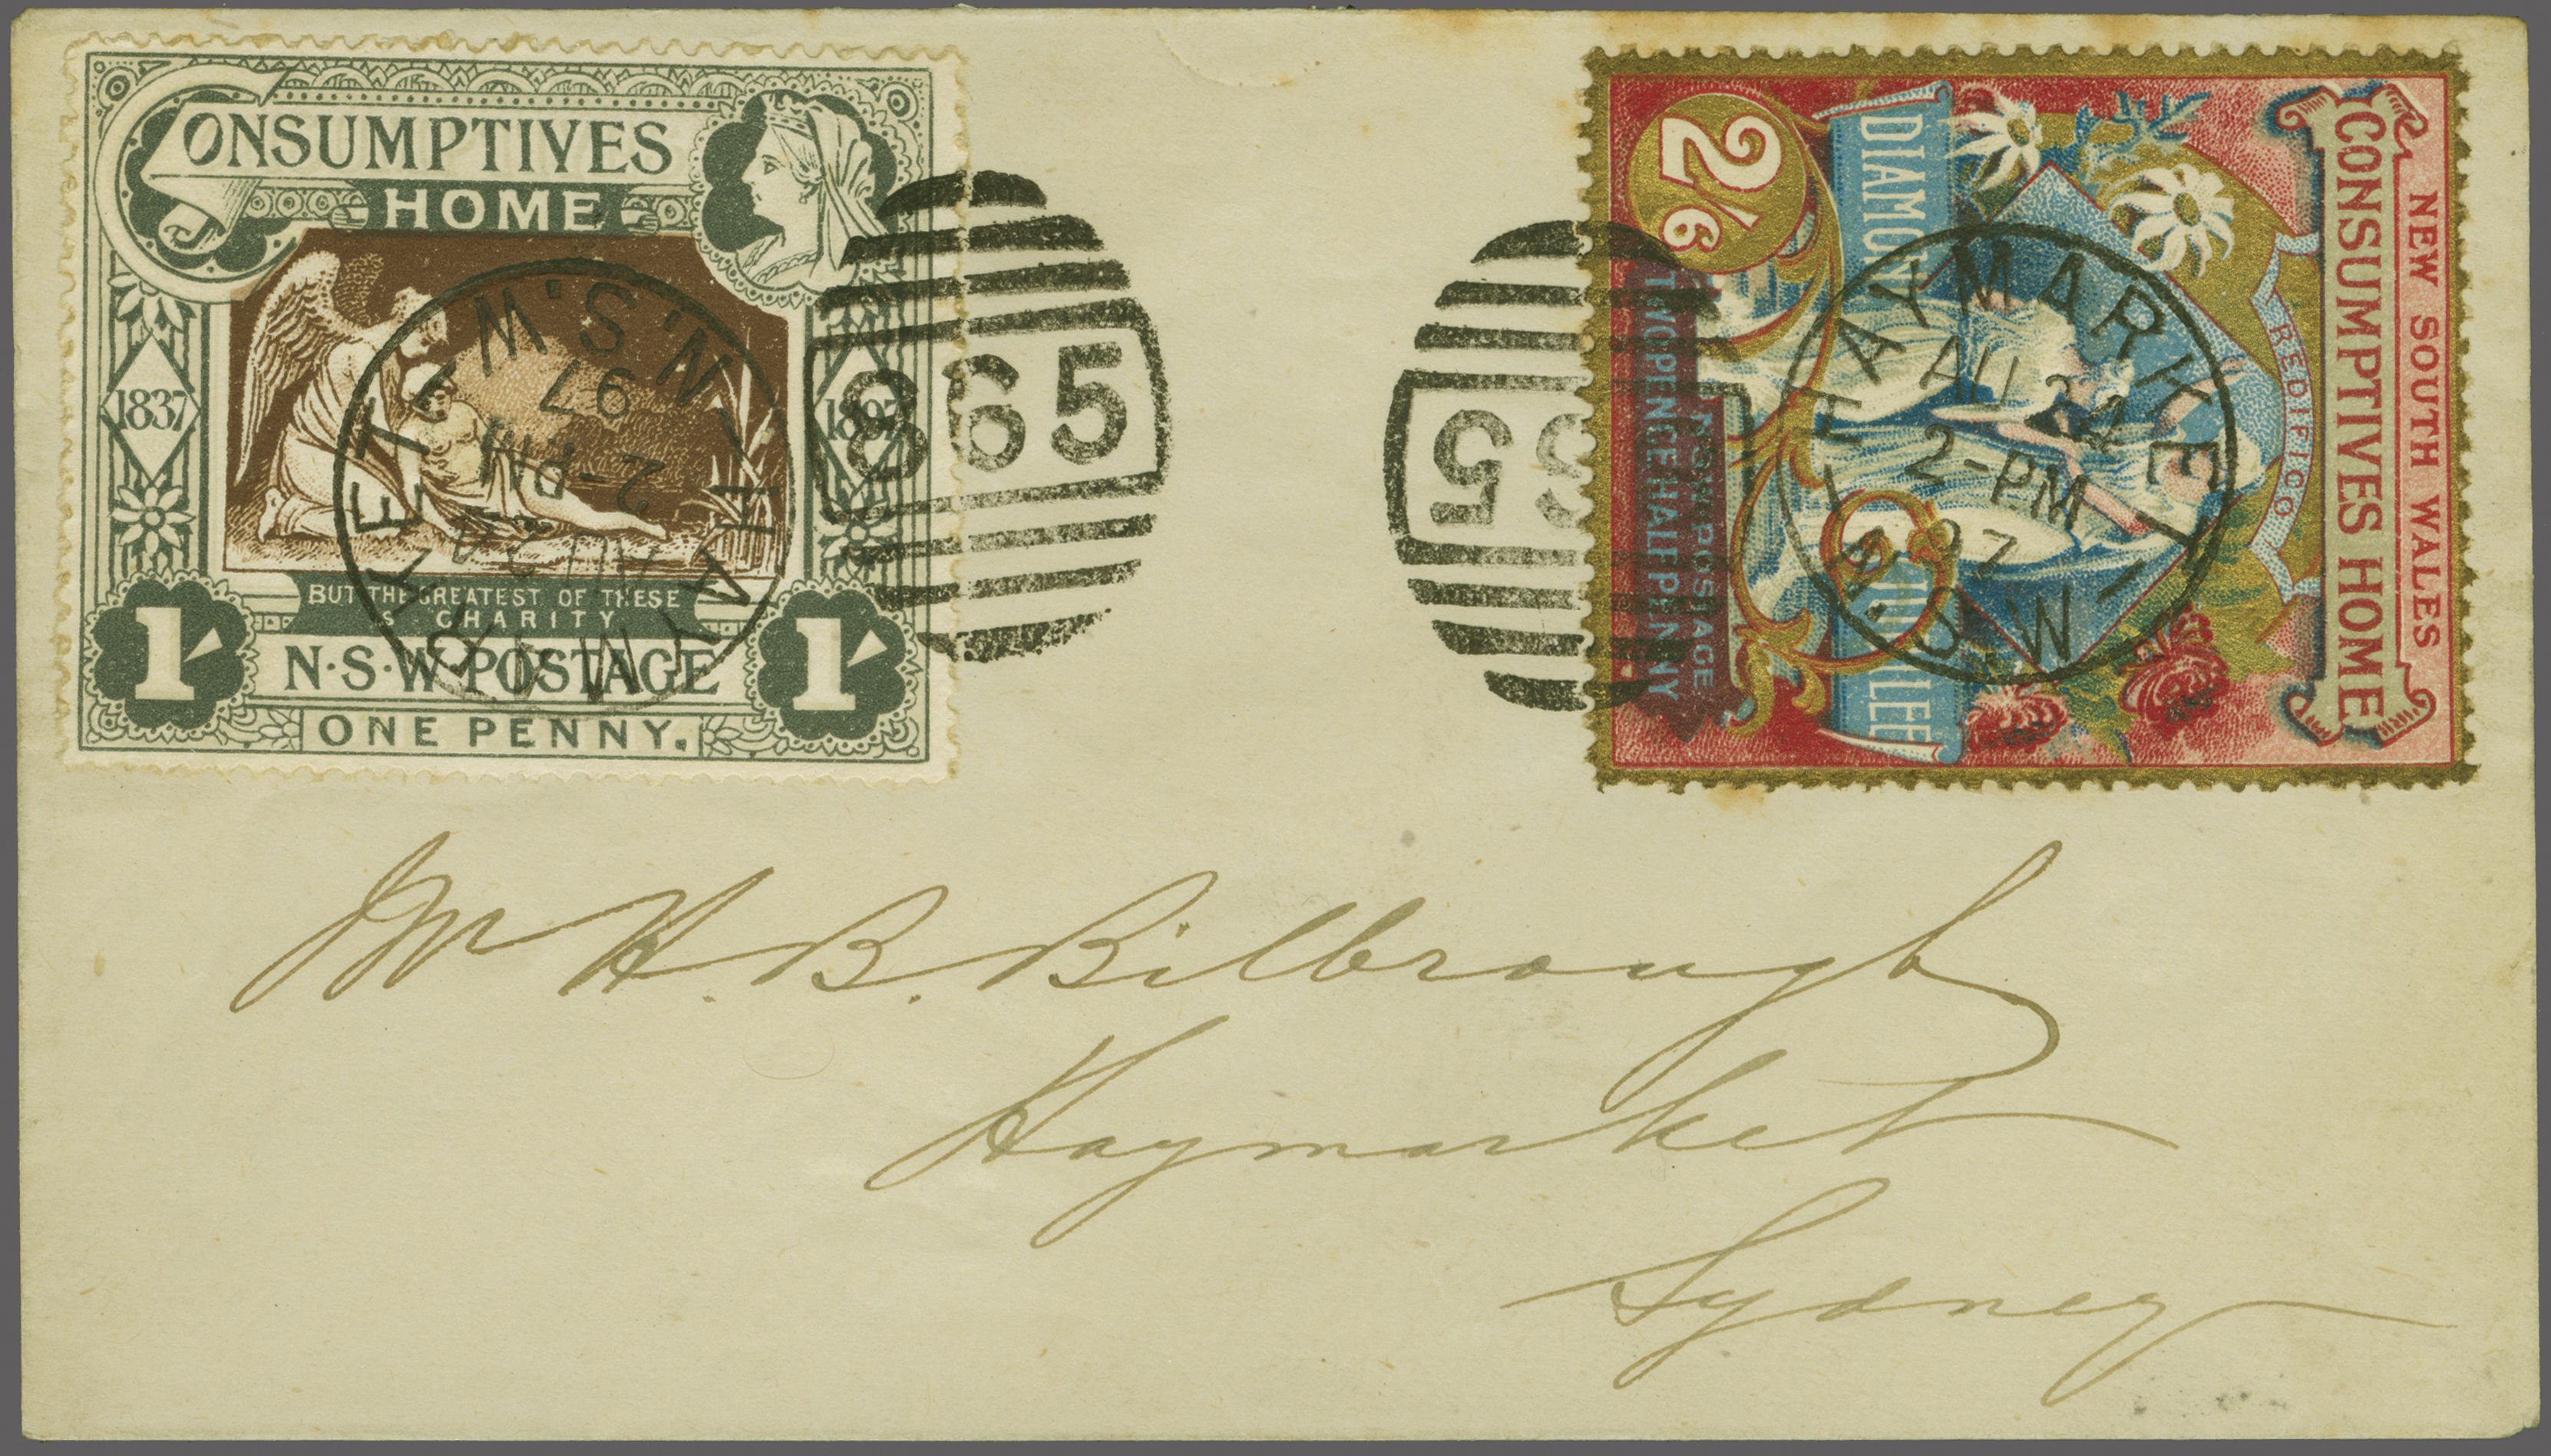 CONSUMPTIVES
HOME
1837
1897
BUT THE GREATEST OF THESE
IS CHARITY
1/
N·S·W·POSTAGE
1/
ONE PENNY.
HAYMARKET
AU 24
2-PM
97
N.S.W
865
NEW SOUTH WALES
CONSUMPTIVES HOME
REDIFICO
DIAMOND JUBILEE
2/6
N·S·W·POSTAGE
TWOPPENCE HALFPENNY
HAYMARKET
AU 24
2-PM
97
N.S.W
Mr H. B. Bilbrough
Haymarket
Sydney